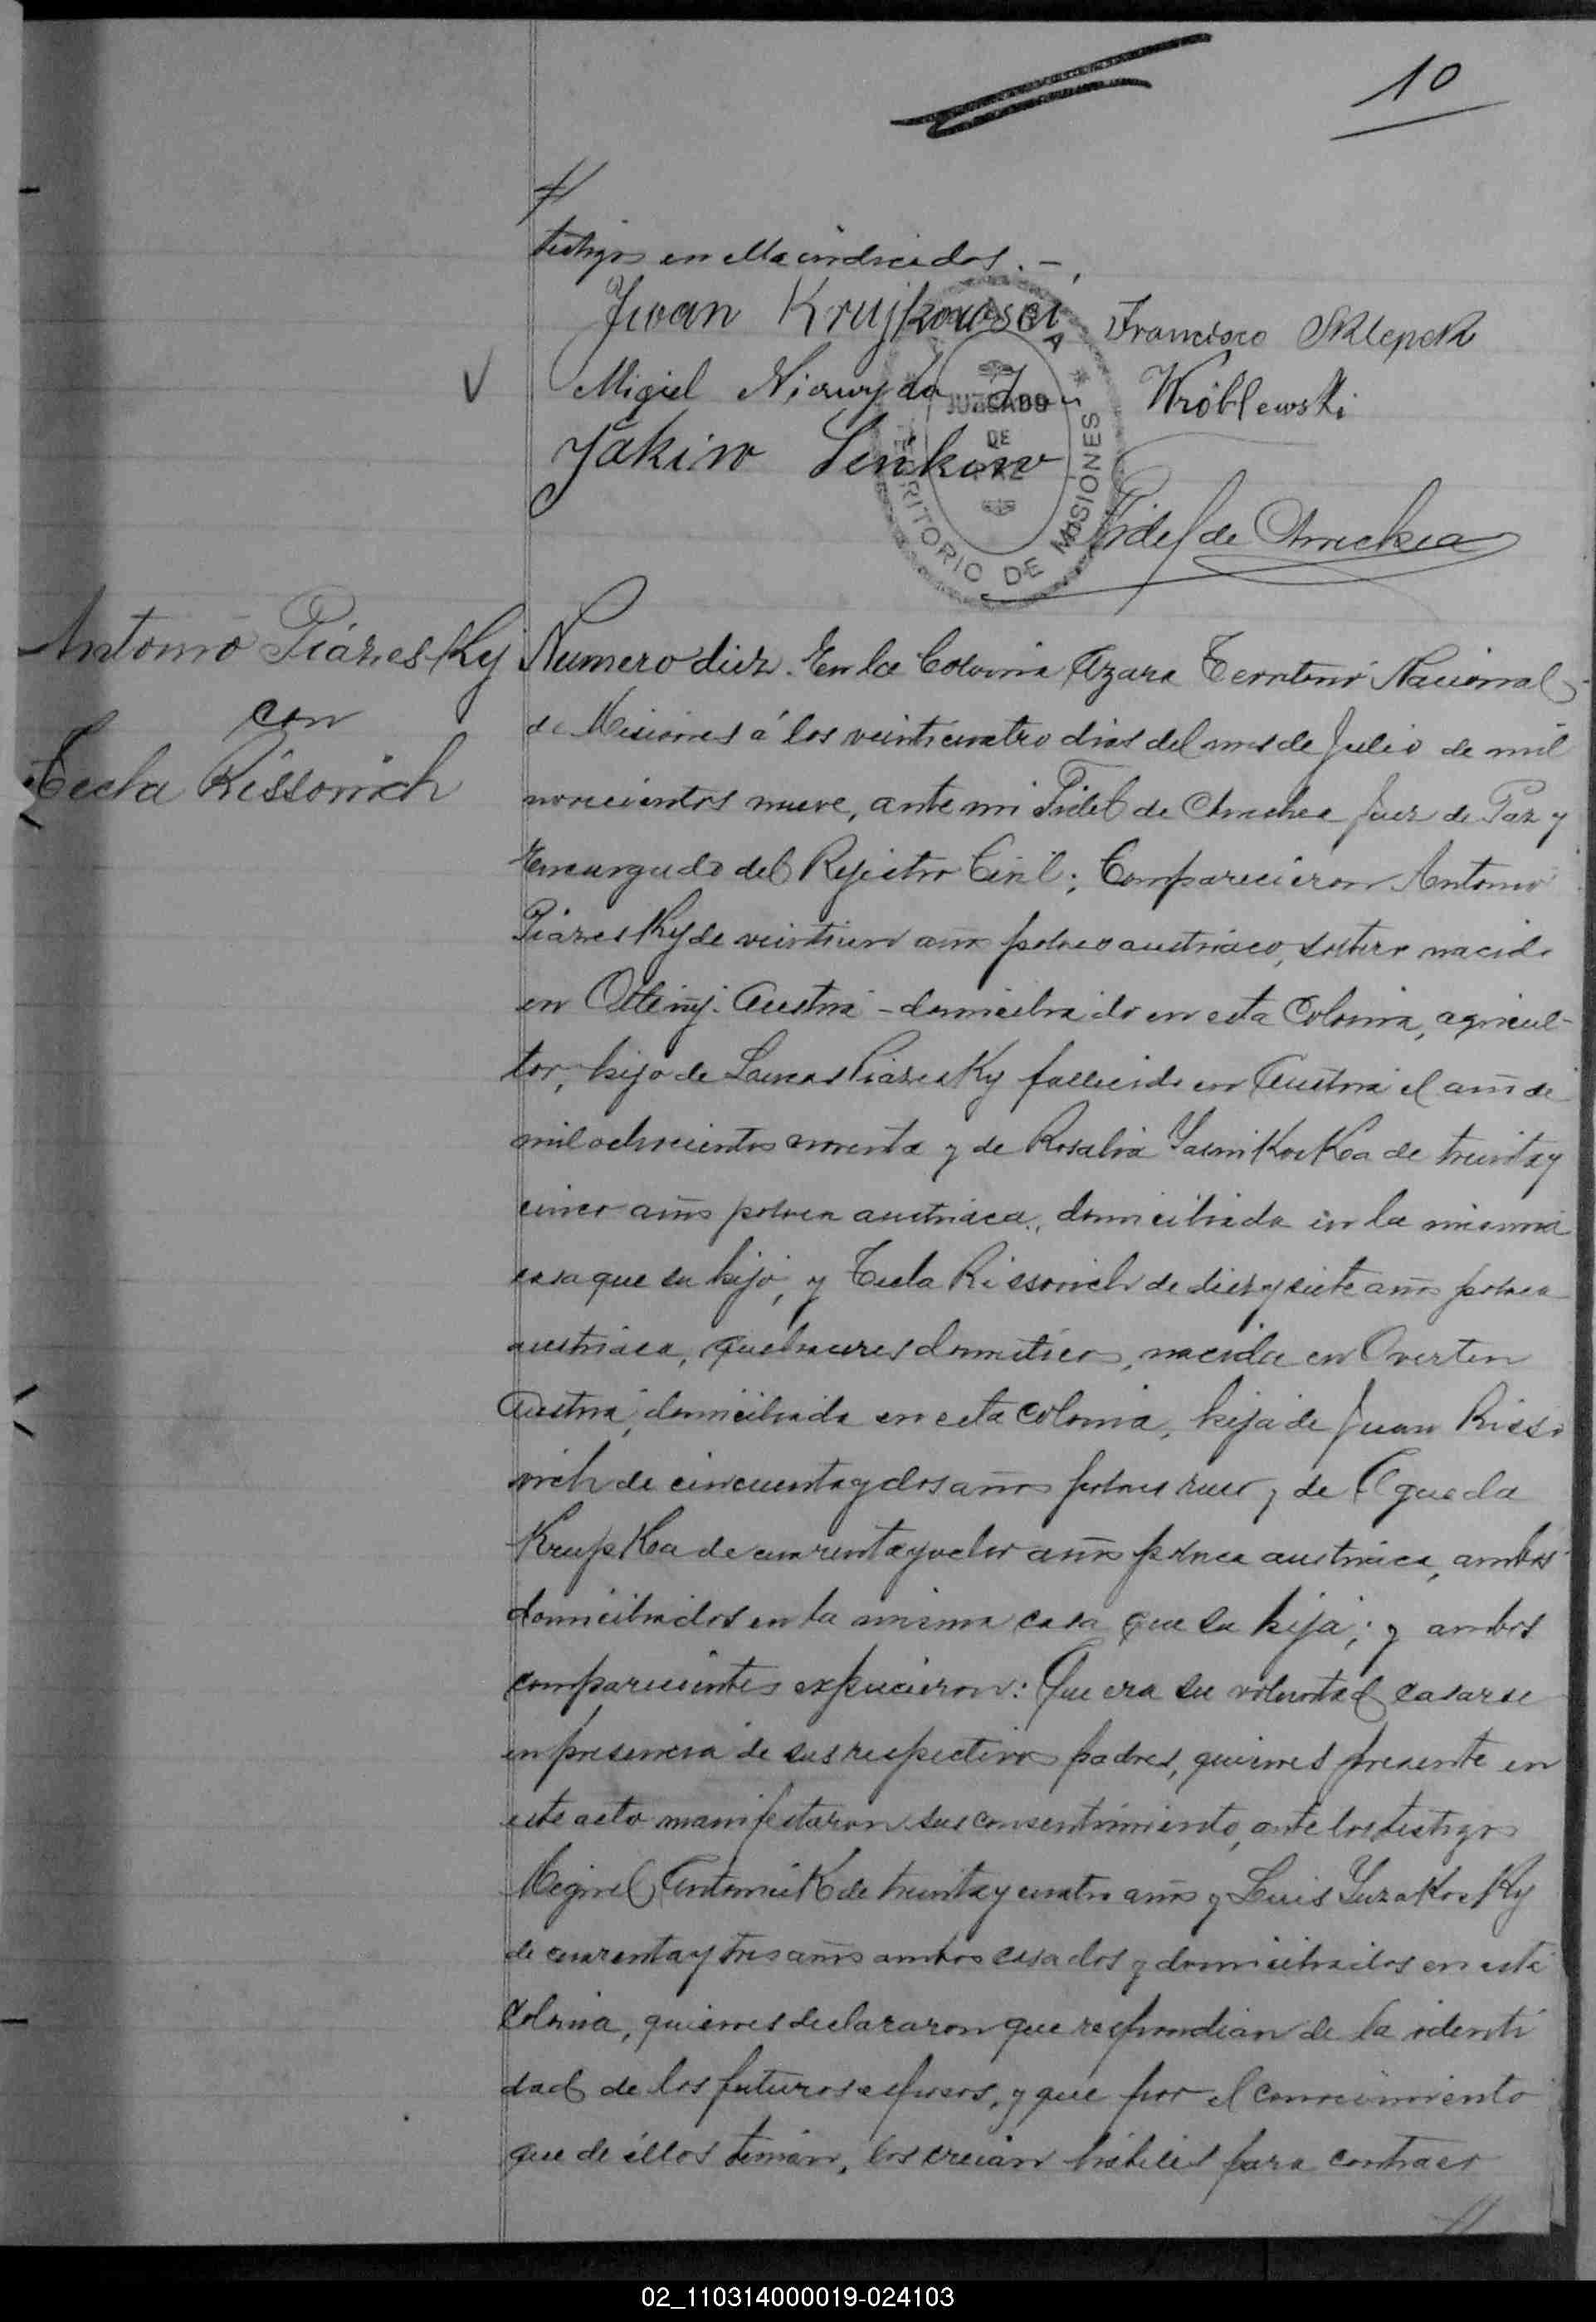 10
testigos en ella indicados. —
Juan Krujkowski Francisco Sklepek
Migiel Niewyda Jan Wróblewski
Jakiw Senkow
JUZGADO
DE
PAZ
TERRITORIO DE MISIONES
Fidel de Amechea
Antonio Piazesky
con
Tecla Rissovich
Numero diez. En la Colonia Azara Territorio Nacional
de Misiones á los veinticuatro dias del mes de Julio de mil
novecientos nueve, ante mi Fidel de Amechea Juez de Paz y
Encargado del Rejistro Civil; Comparecieron Antonio
Piazesky de veintiun años polaco austriaco, soltero nacido
en Austria - domiciliado en esta Colonia, agricul-
tor, hijo de Lucas Piazesky fallecido en Austria el año de
mil ochocientos noventa y de Rosalia de treinta y
cinco años polaca austriaca, domiciliada en la misma
casa que su hijo, y Tecla Rissovich de diez y siete años polaca
austriaca, quehaceres domesticos, nacida en Overten
Austria, domiciliada en esta Colonia, hija de Juan Risso
vich de cincuenta y dos años polaco ruso y de Agueda
Krupka de cuarenta y ocho años polaca austriaca, ambos
domiciliados en la misma casa que su hija; y ambos
comparecientes expucieron: Que era su voluntad casarse
en presencia de sus respectivos padres, quienes presente en
este acto manifestaron su consentimiento, ante los testigos
Miguel Antoniek de treinta y cuatro años y Luis Yuzakosky
de cuarenta y tres años ambos casados y domiciliados en esta
Colonia, quienes declararon que respondian de la identi
dad de los futuros esposos, y que por el conocimiento
que de éllos tenian, los creian habiles para contraer
02_110314000019-024103